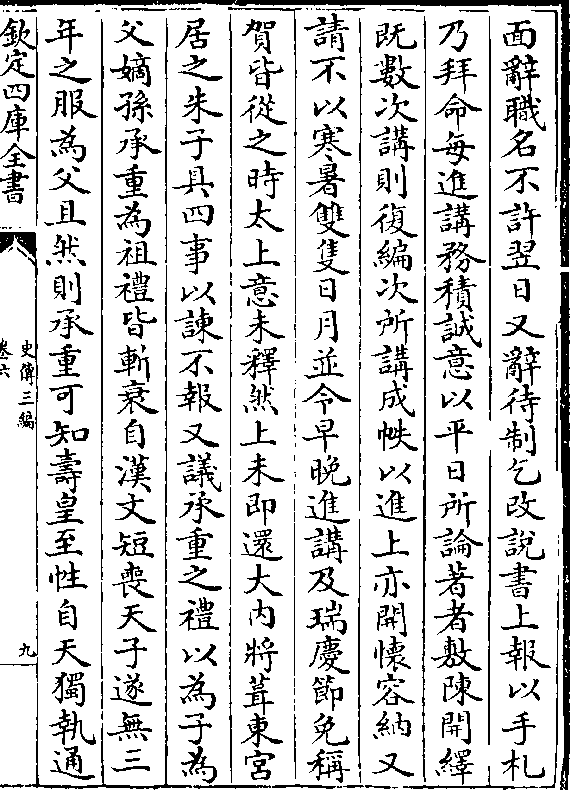 面辭職名不許翌日又辭待制乞改說書上報以手札
乃拜命每進講務積誠意以平日所論著者敷陳開繹
既數次講則復編次所講成帙以進上亦開懷容納又
請不以寒暑雙隻日月並令早晚進講及瑞慶節免稱
賀皆從之時太上意未釋然上未即還大內將葺東宮
居之朱子具四事以諫不報又議承重之禮以為子為
父嫡孫承重為祖禮皆斬衰自漢文短喪天子遂無三
年之服為父且然則承重可知壽皇至性自天獨執通
欽定四庫全書
史傳三編
卷六
九